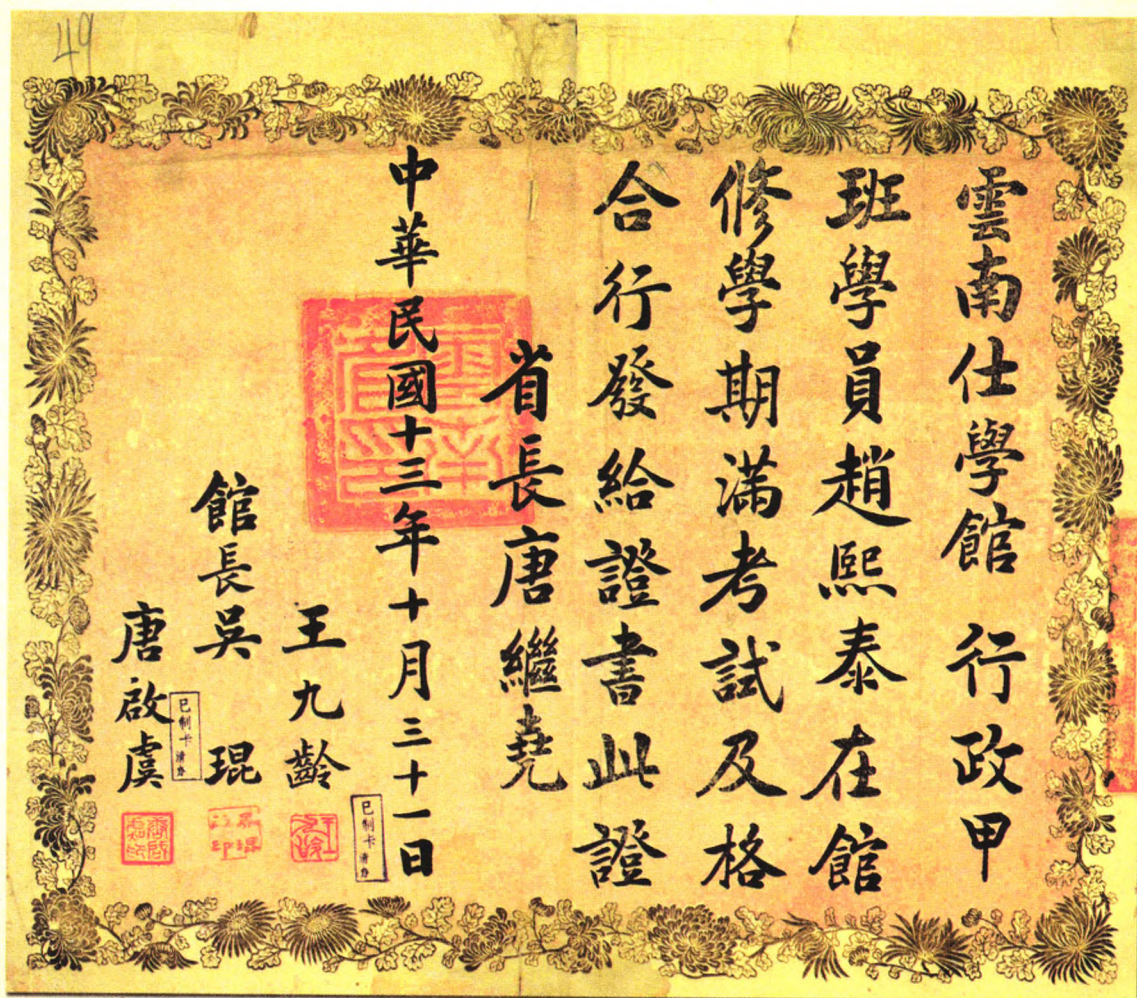 雲南仕學館 行政甲
班學員趙熙泰在館
修學期滿考試及格
合行發給證書此證
省長唐繼堯
中華民國十三年十月三十一日
王九齡
館長吳 琨
唐啟虞
雲南省印
已制卡
已制卡
49